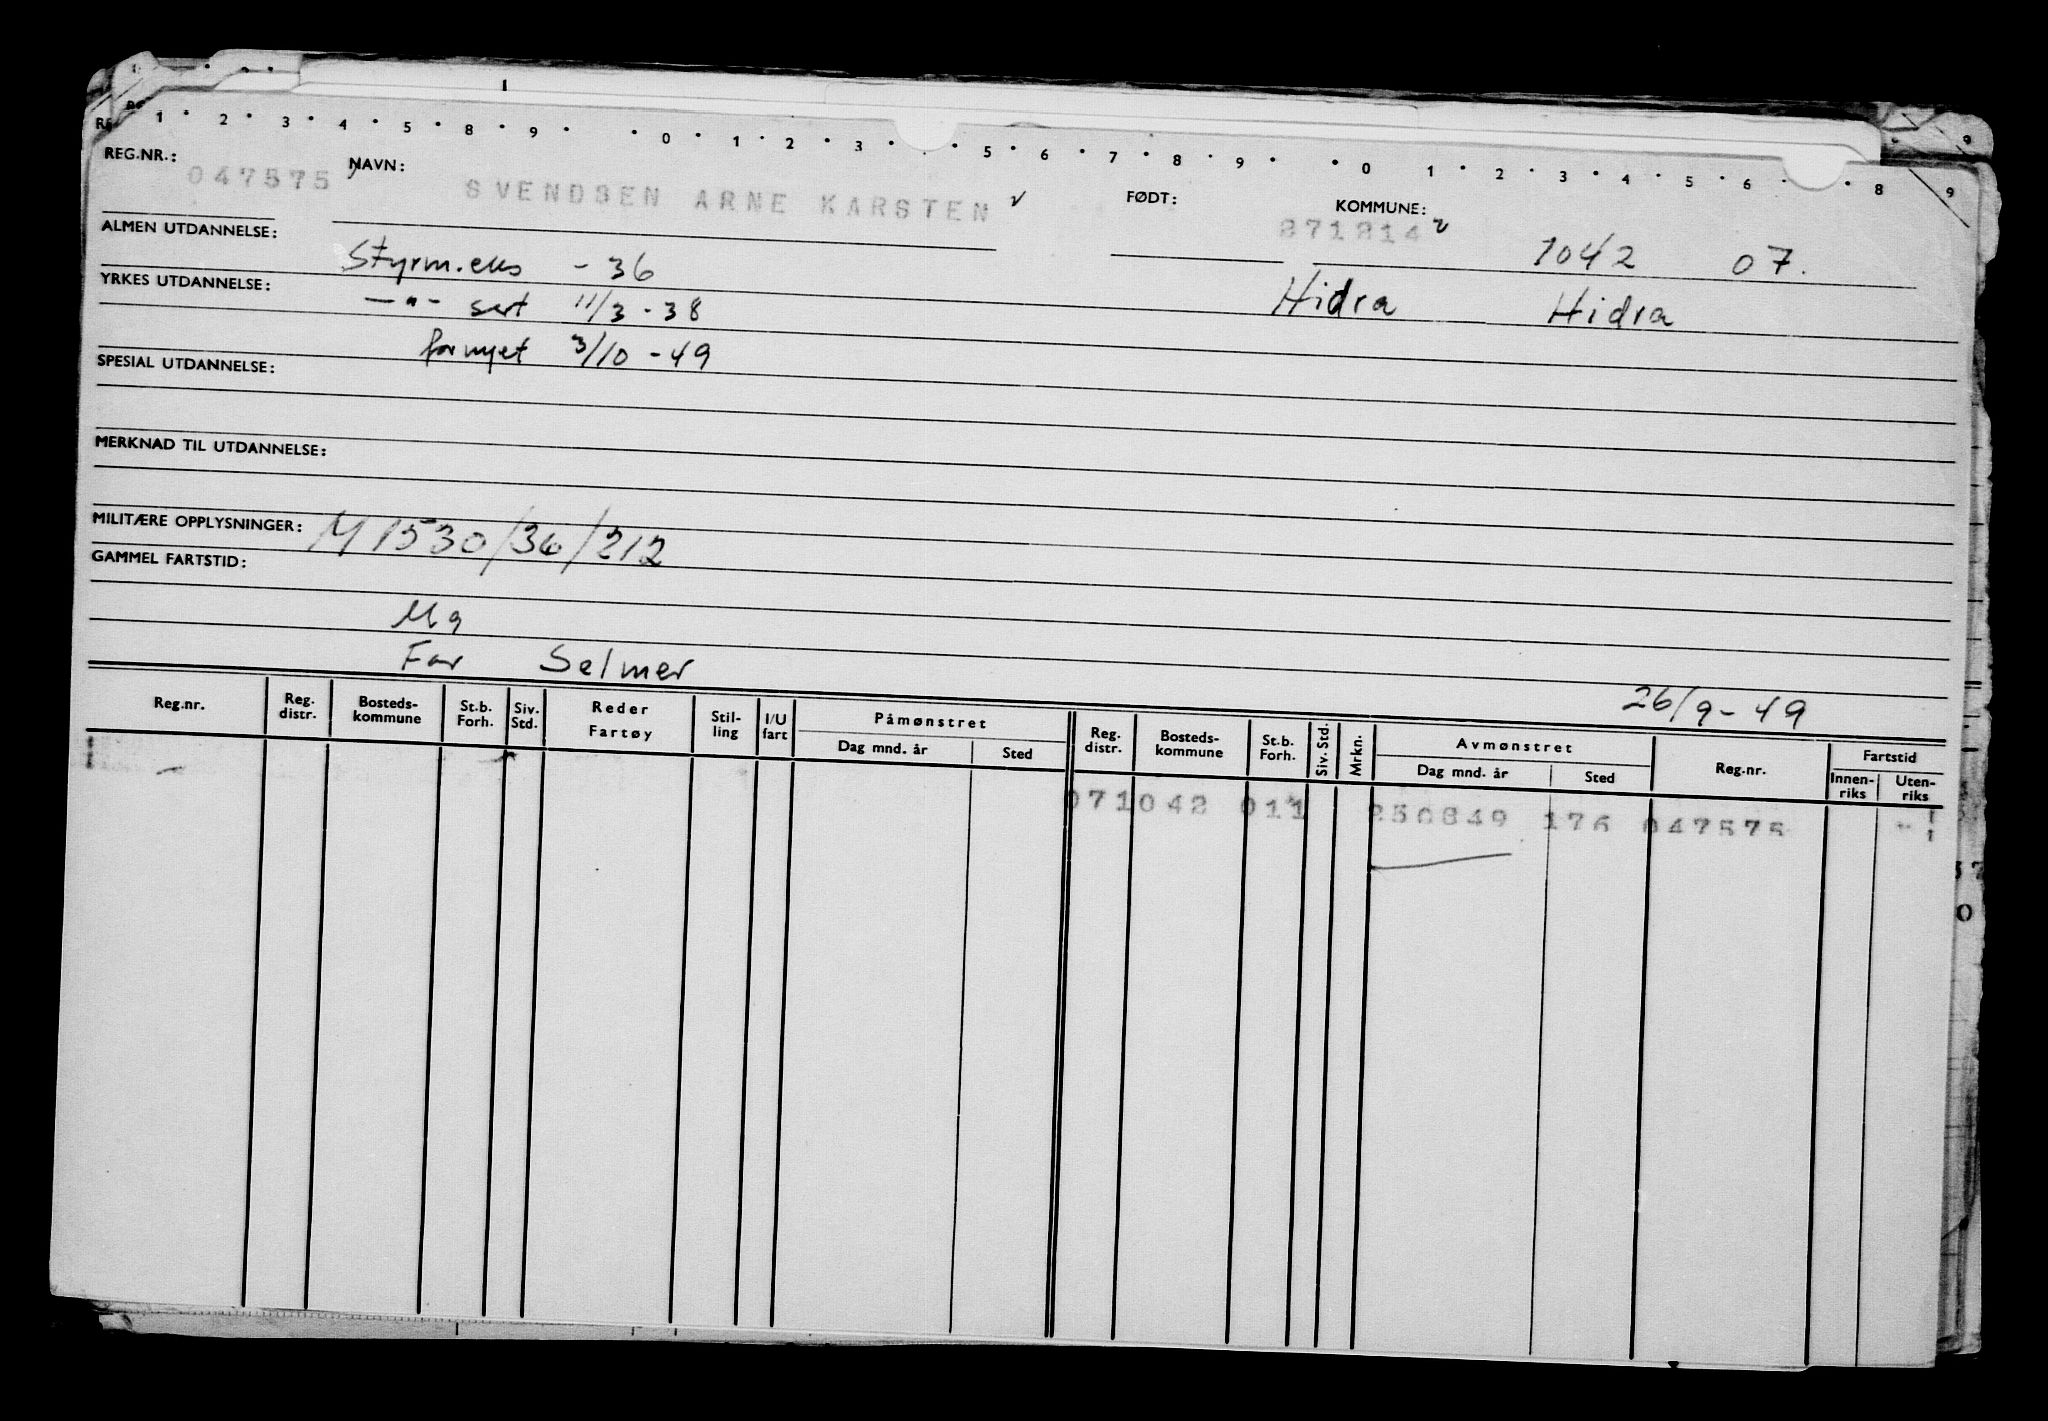 1 2 3 4 5 8 9 0 1 2 3 5 6 7 8 9 0 1 2 3 4 5 6 8 9
REG.NR.: 047575 NAVN: SVENDSEN ARNE KARSTEN FØDT: 271214 KOMMUNE: 1042 07.
ALMEN UTDANNELSE: Styrm.eks - 36 Hidra Hidra
YRKES UTDANNELSE: —"— sert 11/3 - 38
fornyet 3/10 - 49
SPESIAL UTDANNELSE:
MERKNAD TIL UTDANNELSE:
MILITÆRE OPPLYSNINGER: M 1530/36/212
GAMMEL FARTSTID:
Mg
Far Selmer
26/9 - 49
Reg.nr. Reg. distr. Bosteds-kommune St.b. Forh. Siv. Std. Reder Fartøy Stil-ling I/U fart Påmønstret Dag mnd. år Sted Reg. distr. Bosteds-kommune St.b. Forh. Siv. Std. Mrkn. Avmønstret Dag mnd. år Sted Reg.nr. Fartstid Innen-riks Uten-riks
071042 011 250849 176 047575